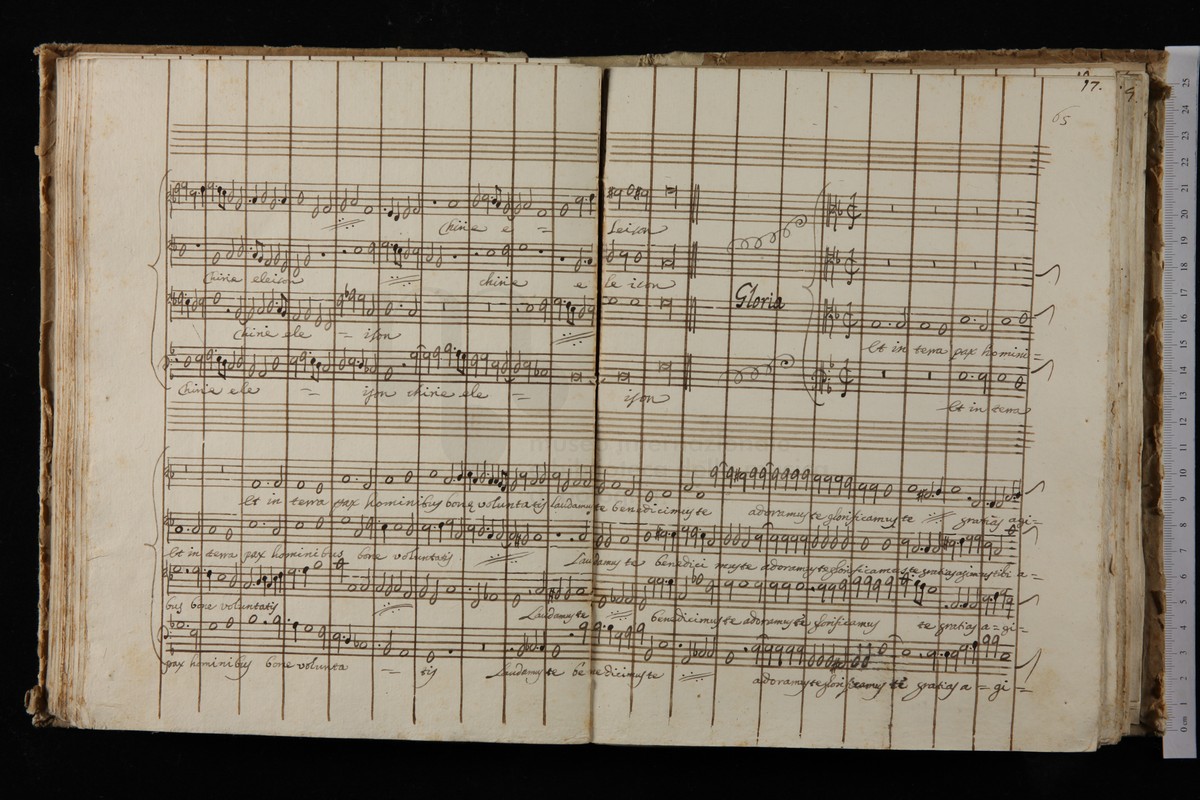 97.
65
Chirie e =
Leison
Chirie eleison
chirie
e
le ison
Gloria
Chirie ele = ison
Et in terra pax homini =
Chirie ele = ison chirie ele =
ison
Et in terra
museo internazionale
Et in terra pax hominibus bone voluntatis laudamus te benedicimus te
adoramus te glorificamus te
gratias agi =
Et in terra pax hominibus bone voluntatis
Laudamus te benedici mus te adoramus te glorificamus te gratias agimus tibi a =
bus bone voluntatis
Laudamus te
benedicimus te adoramus te glorificamus te gratias a = gi =
pax hominibus bone volunta = tis
Laudamus te be nedicimus te
adoramus te glorificamus te gratias a = gi =